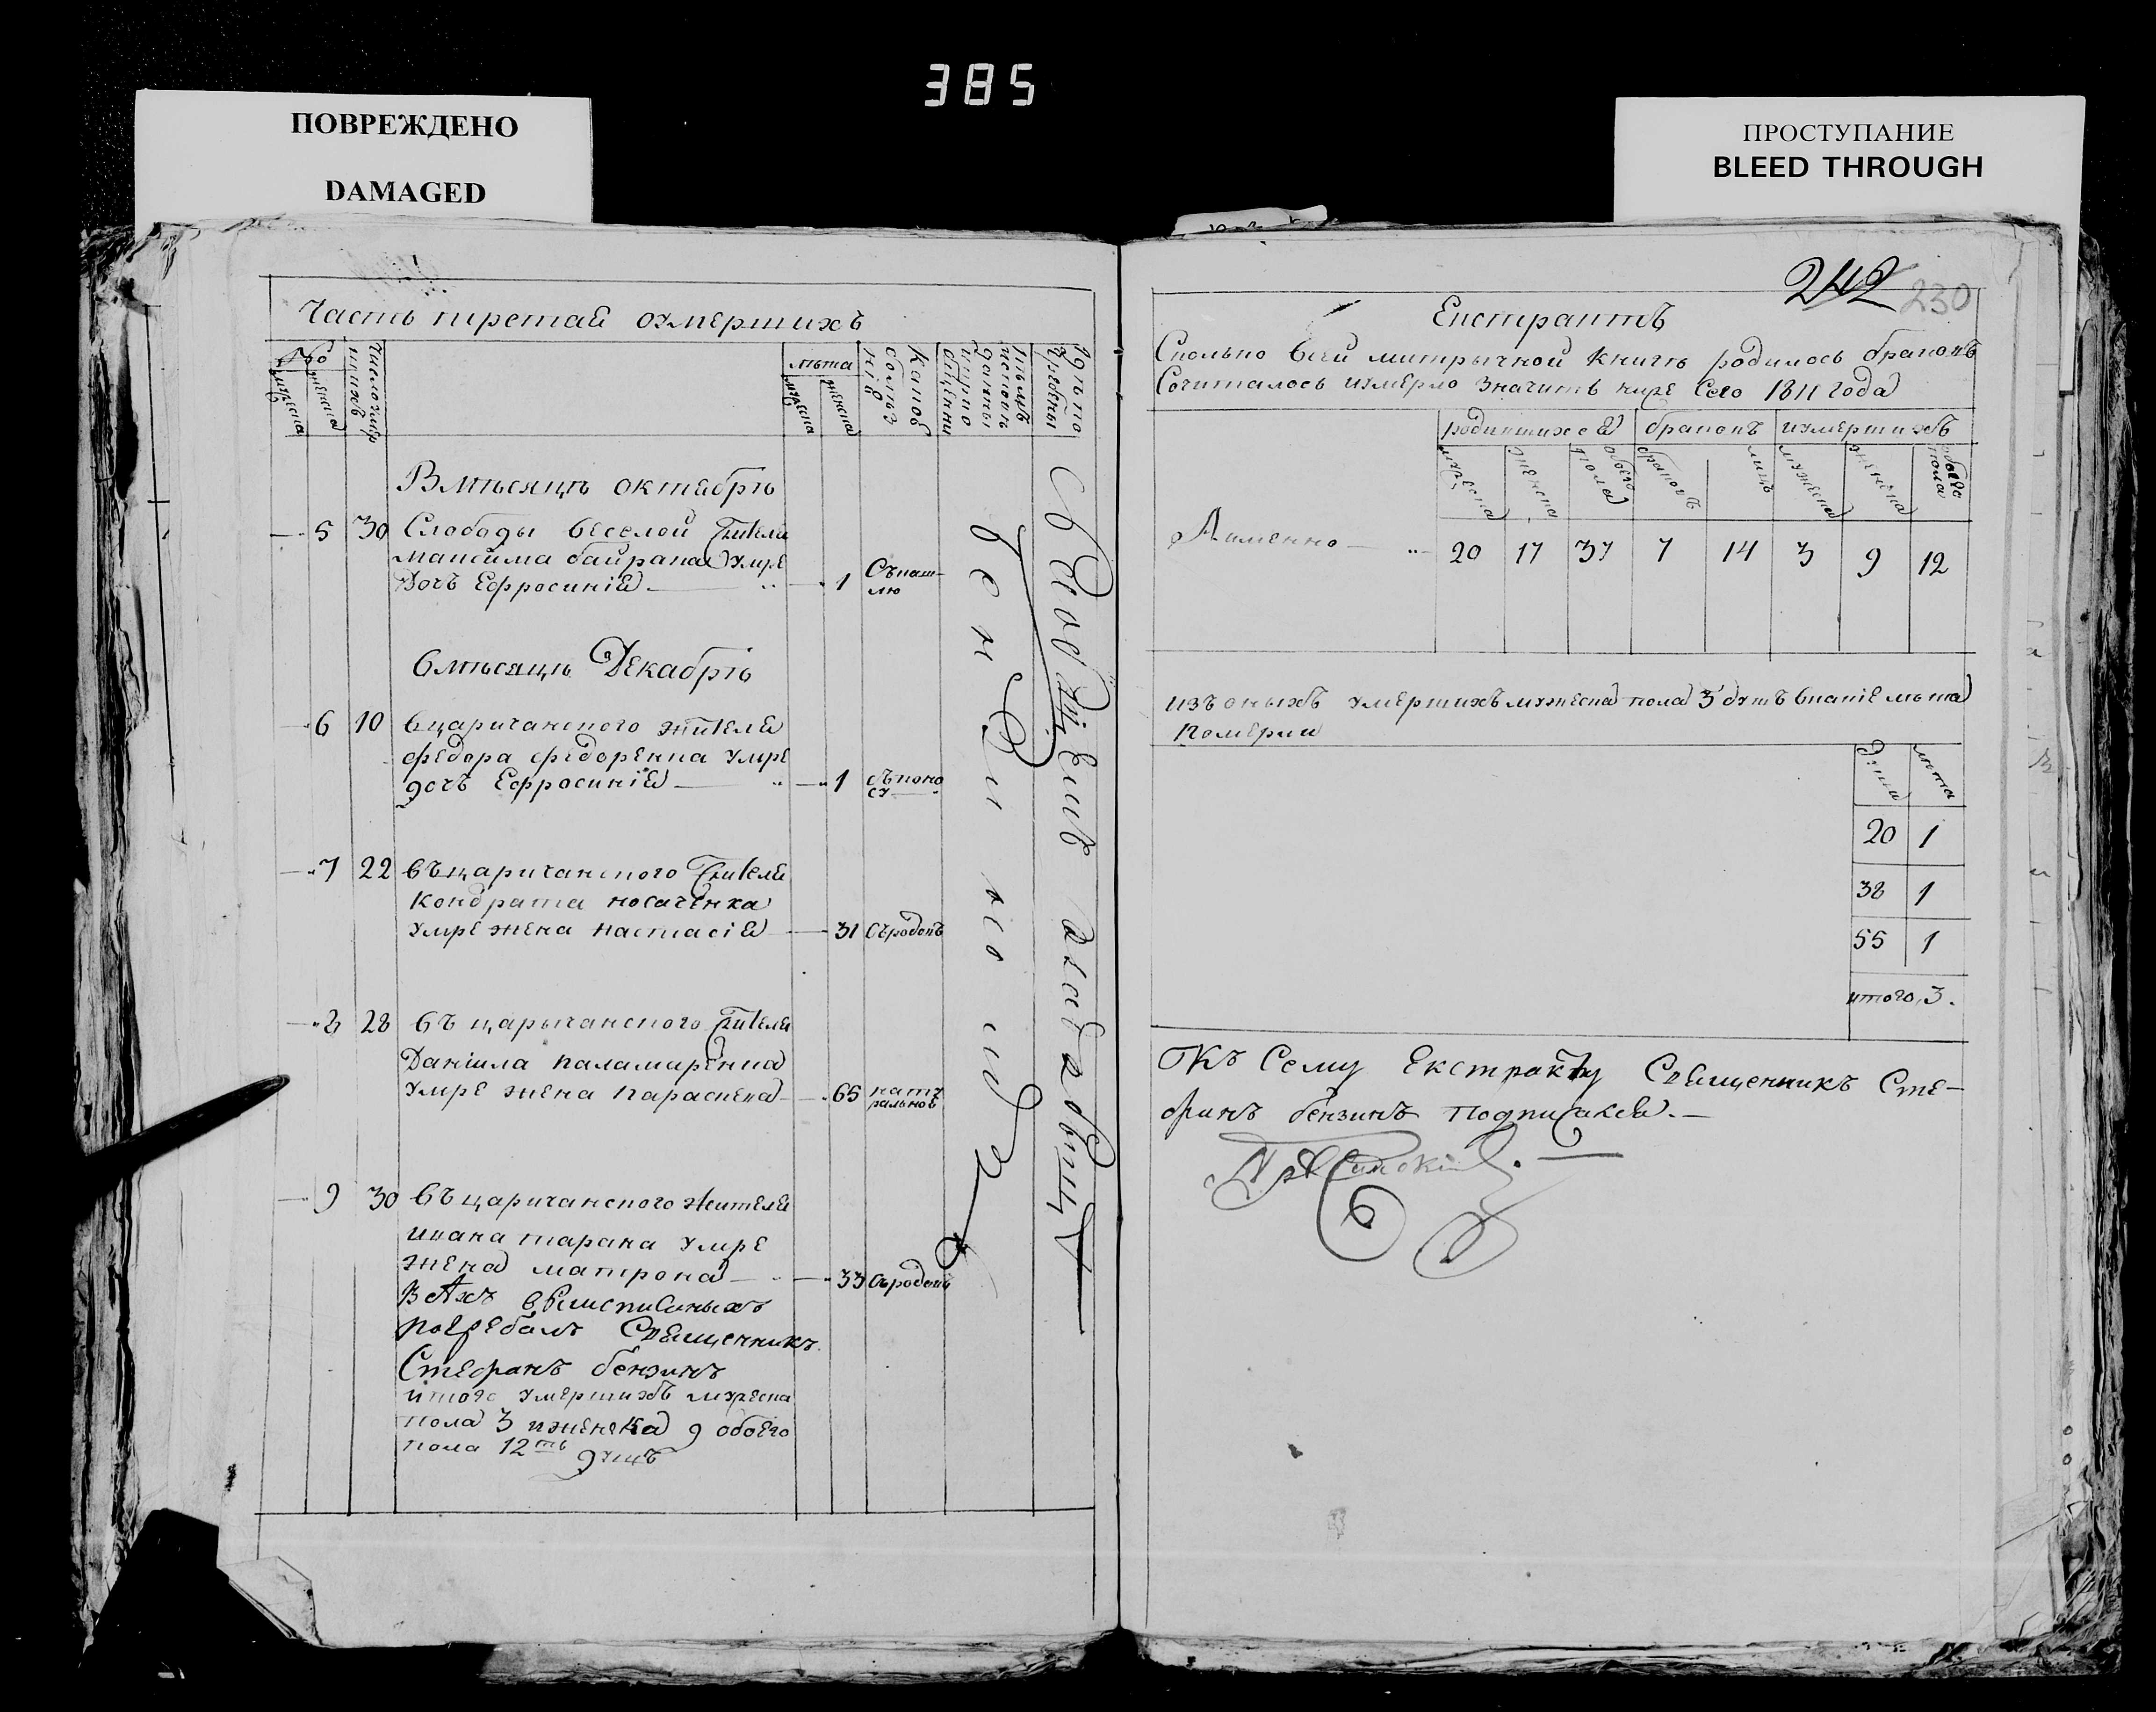 385
ПОВРЕЖДЕНО
DAMAGED
ПРОСТУПАНИЕ
BLEED THROUGH
Часть третая умершихъ
№
мужеска
женска
лѣта
мужеска
женска
Какою
болѣз
нію
Вмѣсяцѣ октябрѣ
5 30 Слободы веселой жителя
максима байрака умре
Дочъ Ефросиніа 1 Съкаш-
лю
вмѣсяцѣ Декабрѣ
6 10 вцаричанского жителя
федора федоренка умре
дочъ Ефросиніа 1
7 22 въцаричанского жителя
кондрата носаченка
умре жена настасіа 31 Съродовъ
8 28 въ царычанского жителя
Даніила паламаренка
умре жена параскева 65 нату
ральною
9 30 въ царичанского жителя
ивана тарана умре
жена матрона 33 Съродовъ
Всѣхъ вышеписаныхъ
погребалъ Священникъ
Стефанъ бензинъ
итого умершихъ мужеска
пола 3 иженска 9 обоего
пола 12ть душъ
242 230
Екстрактъ
Сколько всей митрычной книгѣ родилось браковъ
Сочиталось иумерло значитъ ниже Сего 1811 года
родившихся браковъ иумершихъ
мужеска женска обоего пола браковъ лицъ мужеска женска обоего пола
Аименно 20 17 37 7 14 3 9 12
изъ оныхъ умершихъ мужеска пола 3 душъ вканіе лѣта
померли
лѣта
20 1
38 1
55 1
итого 3.
Къ Сему Екстракту Священникъ Сте-
фанъ бензинъ подписакся.